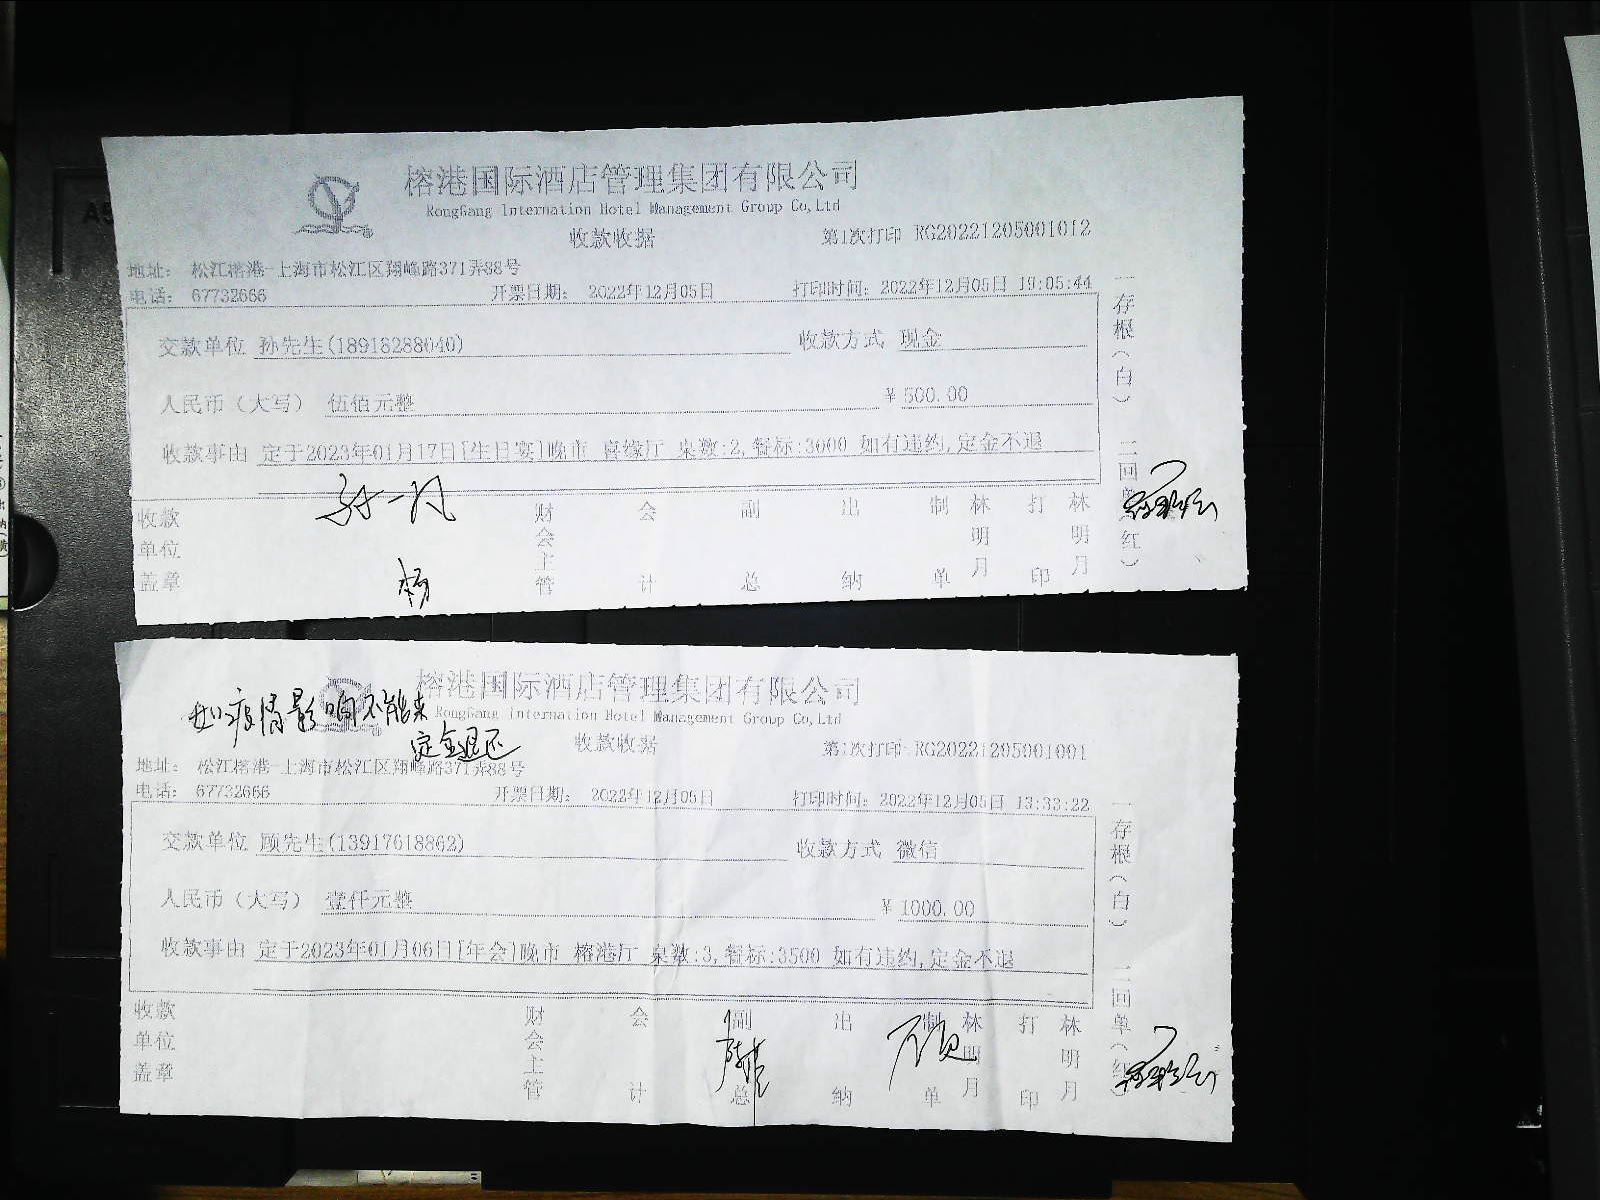 榕港国际酒店管理集团有限公司
RongGang Internation Hotel Management Group Co,Ltd
收款收据
第1次打印 RG20221205001012
地址： 松江榕港-上海市松江区翔峰路371弄88号
电话： 67732666 开票日期： 2022年12月05日 打印时间：2022年12月05日 19:05:44
交款单位 孙先生(18918288040) 收款方式 现金
人民币（大写） 伍佰元整 ￥500.00
收款事由 定于2023年01月17日[生日宴]晚市 喜缘厅 桌数:2,餐标:3000 如有违约,定金不退
收款单位盖章 孙一凡 杨 财会主管 会计 副总 出纳 制单 林明月 打印 林明月
一存根（白） 二回单（红）
榕港国际酒店管理集团有限公司
RongGang Internation Hotel Management Group Co,Ltd
如疫情影响不能来
定金退还
收款收据
第1次打印 RG20221205001001
地址： 松江榕港-上海市松江区翔峰路371弄88号
电话： 67732666 开票日期： 2022年12月05日 打印时间：2022年12月05日 13:33:22
交款单位 顾先生(13917618862) 收款方式 微信
人民币（大写） 壹仟元整 ￥1000.00
收款事由 定于2023年01月06日[年会]晚市 榕港厅 桌数:3,餐标:3500 如有违约,定金不退
收款单位盖章 财会主管 会计 副总 出纳 制单 顾 林明月 打印 林明月
一存根（白） 二回单（红）